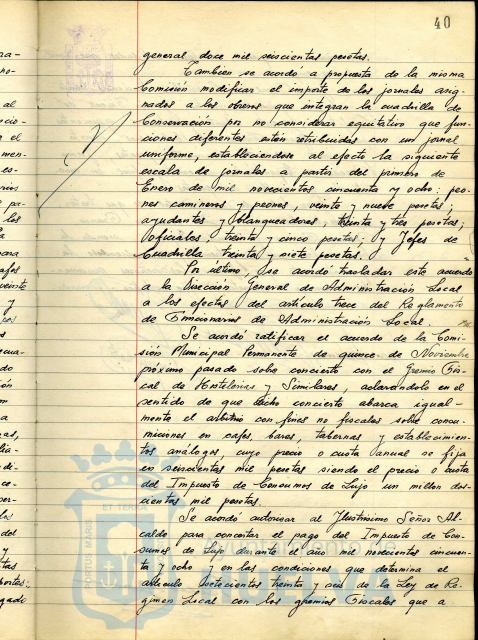 40
general doce mil seiscientas pesetas.
Tambien se acordó a propuesta de la misma
Comisión modificar el importe de los jornales asig-
nados a los obreros que integran la cuadrilla de
Conservación por no considerar equitativo que fun-
ciones diferentes estén retribuidas con un jornal
uniforme, estableciendose al efecto la siguiente
escala de jornales a partir del primero de
Enero de mil novecientos cincuenta y ocho: peo-
nes camineros y peones, veinte y nueve pesetas;
ayudantes y blanqueadores, treinta y tres pesetas;
oficiales, treinta y cinco pesetas; y Jefes de
Cuadrilla treinta y siete pesetas.
Por último, se acordó trasladar este acuerdo
a la Dirección General de Administración Local
a los efectos del artículo trece del Reglamento
de Funcionarios de Administración Local.
Se acordó ratificar el acuerdo de la Comi-
sión Municipal Permanente de quince de Noviembre
próximo pasado sobre concierto con el Gremio Fis-
cal de Hostelerias y Similares, aclarandolo en el
sentido de que dicho concierto abarca igual-
mente el arbitrio con fines no fiscales sobre consu-
miciones en cafes, bares, tabernas y establecimien-
tos analogos, cuyo precio o cuota anual se fija
en seiscientas mil pesetas siendo el precio o cuota
del Impuesto de Consumos de Lujo un millon dos-
cientas mil pesetas.
Se acordó autorizar al Ilustrisimo Señor Al-
calde para concertar el pago del Impuesto de Con-
sumos de Lujo durante el año mil novecientos cincuen-
ta y ocho y en las condiciones que determina el
artículo setecientos treinta y seis de la Ley de Re-
gimen Local con los gremios Fiscales que a